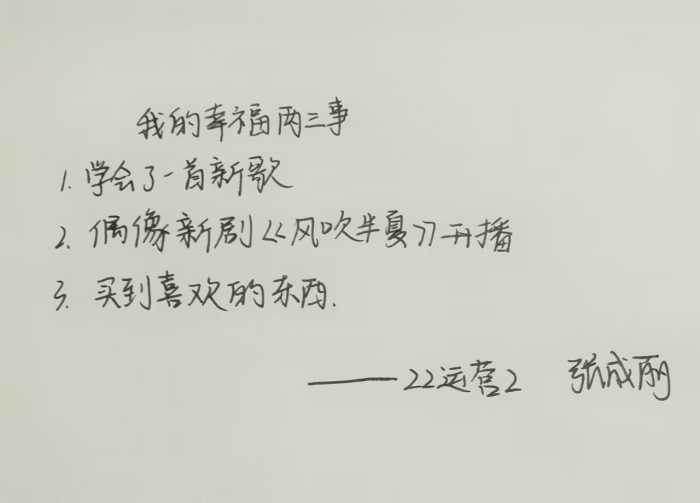 我的幸福两三事
1. 学会了一首新歌
2. 偶像新剧《风吹半夏》开播
3. 买到喜欢的东西.
——22运营2 张成丽